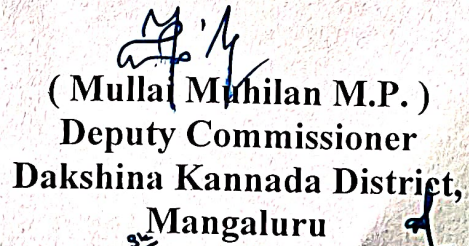 ( Mullai Muhilan M.P. )
Deputy Commissioner
Dakshina Kannada District,
Mangaluru